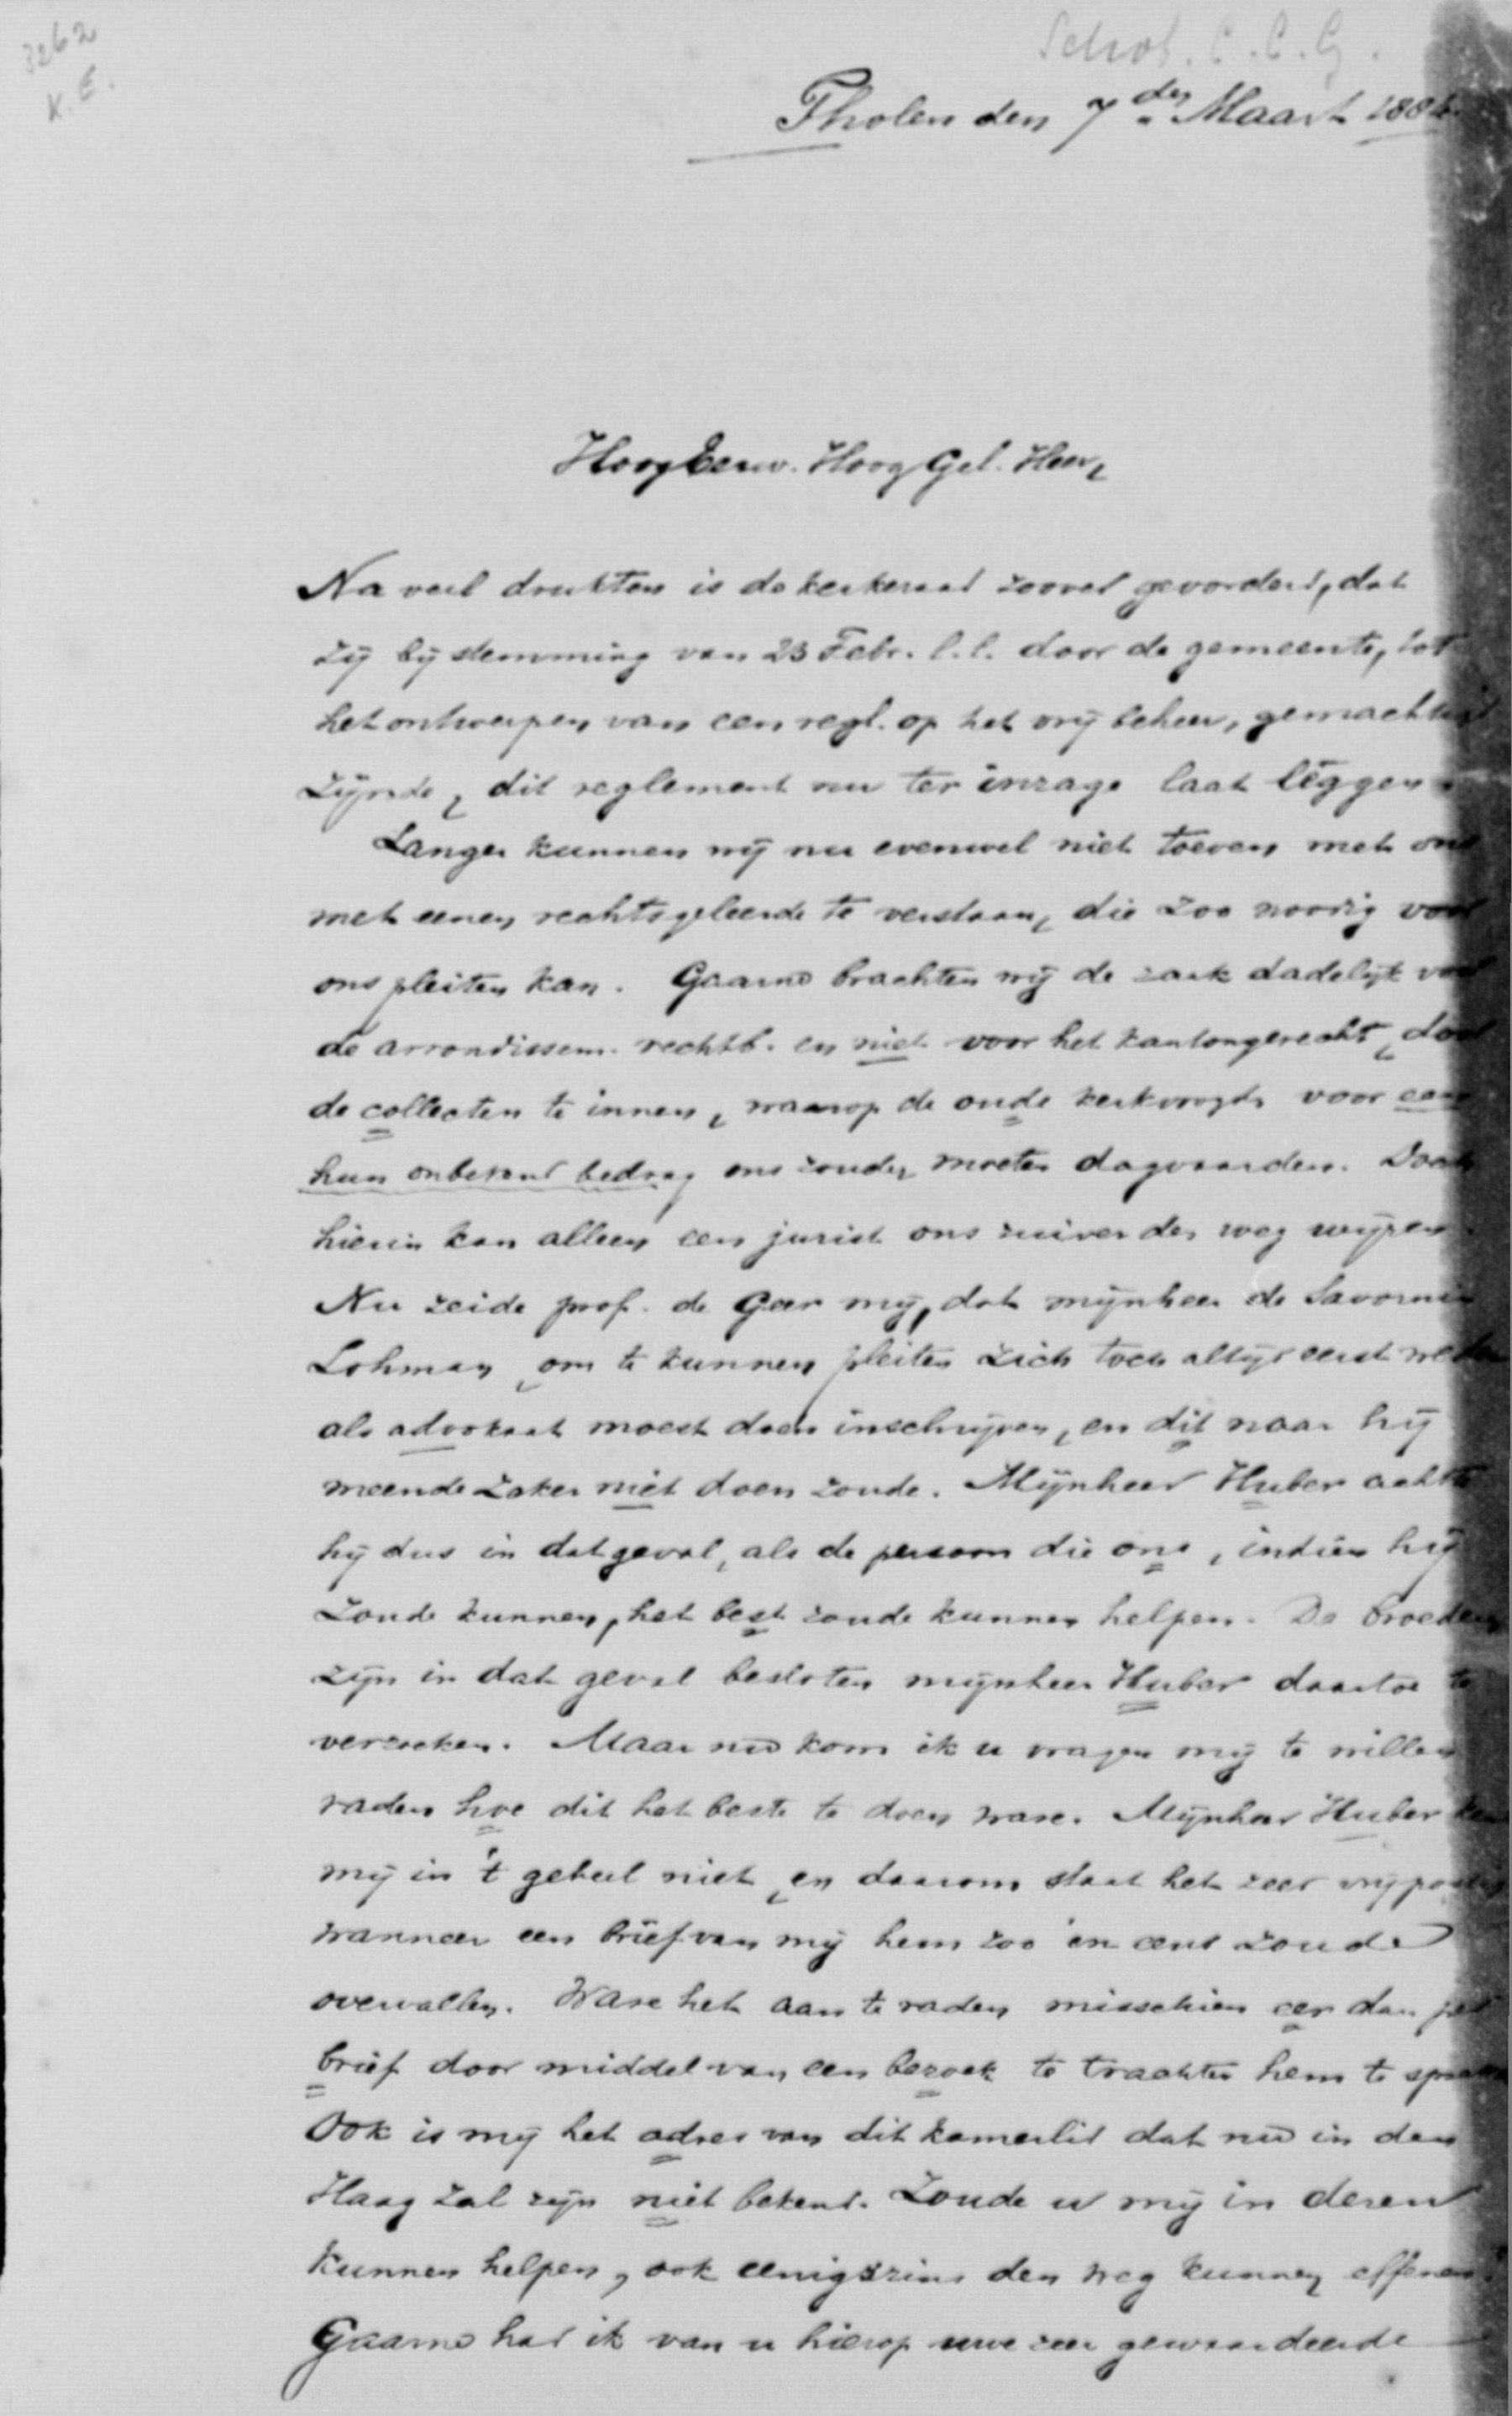 3262
K.E.
Schot. C.C.G.
Tholen den 7den Maart 188
HoogEerw. HoogGel. Heer,
Na veel drukten is de kerkeraad zoover gevorderd, dat
zij bij stemming van 23 Febr. l.l. door de gemeente, tot
het ontwerpen van een regl. op het vrij beheer, gemachtigd
zijnde, dit reglement nu ter inzage laat leggen.
Langer kunnen wij nu evenwel niet toeven met ons
met eenen rechtsgeleerde te verstaan, die zoo noodig voor
ons pleiten kan. Gaarne brachten wij de zaak dadelijk voor
de arrondissem. rechtb. en niet voor het kantongerecht, door
de collecten te innen, waarop de oude kerkvoogdn voor een
hun onbekend bedrag ons zouden moeten dagvaarden. Doch
hierin kan alleen een jurist ons zuiver den weg wijzen.
Nu zeide prof. de Geer mij, dat mijnheer de Savornin
Lohman, om te kunnen pleiten zich toch altijd eerst weder
als advokaat moest doen inschrijven, en dit naar hij
meende zeker niet doen zoude. Mijnheer Huber achtte
hij dus in dat geval, als de persoon die ons, indien hij
zoude kunnen, het best zoude kunnen helpen. De broeders
zijn in dat geval besloten mijnheer Huber daartoe te
verzoeken. Maar nu kom ik u vragen mij te willen
raden hoe dit het beste te doen ware. Mijnheer Huber
mij in 't geheel niet, en daarom staat het zeer vrijpostig
wanneer een brief van mij hem zoo in eens zoude
overvallen. Ware het aan te raden misschien eer dan per
brief door middel van een bezoek te trachten hem te spreken
Ook is mij het adres van dit kamerlid dat nu in den
Haag zal zijn niet bekend. Zoude u mij in dezen
kunnen helpen, ook eenigszins den weg kunnen effenen?
Gaarne had ik van u hierop uwe zeer gewaardeerde